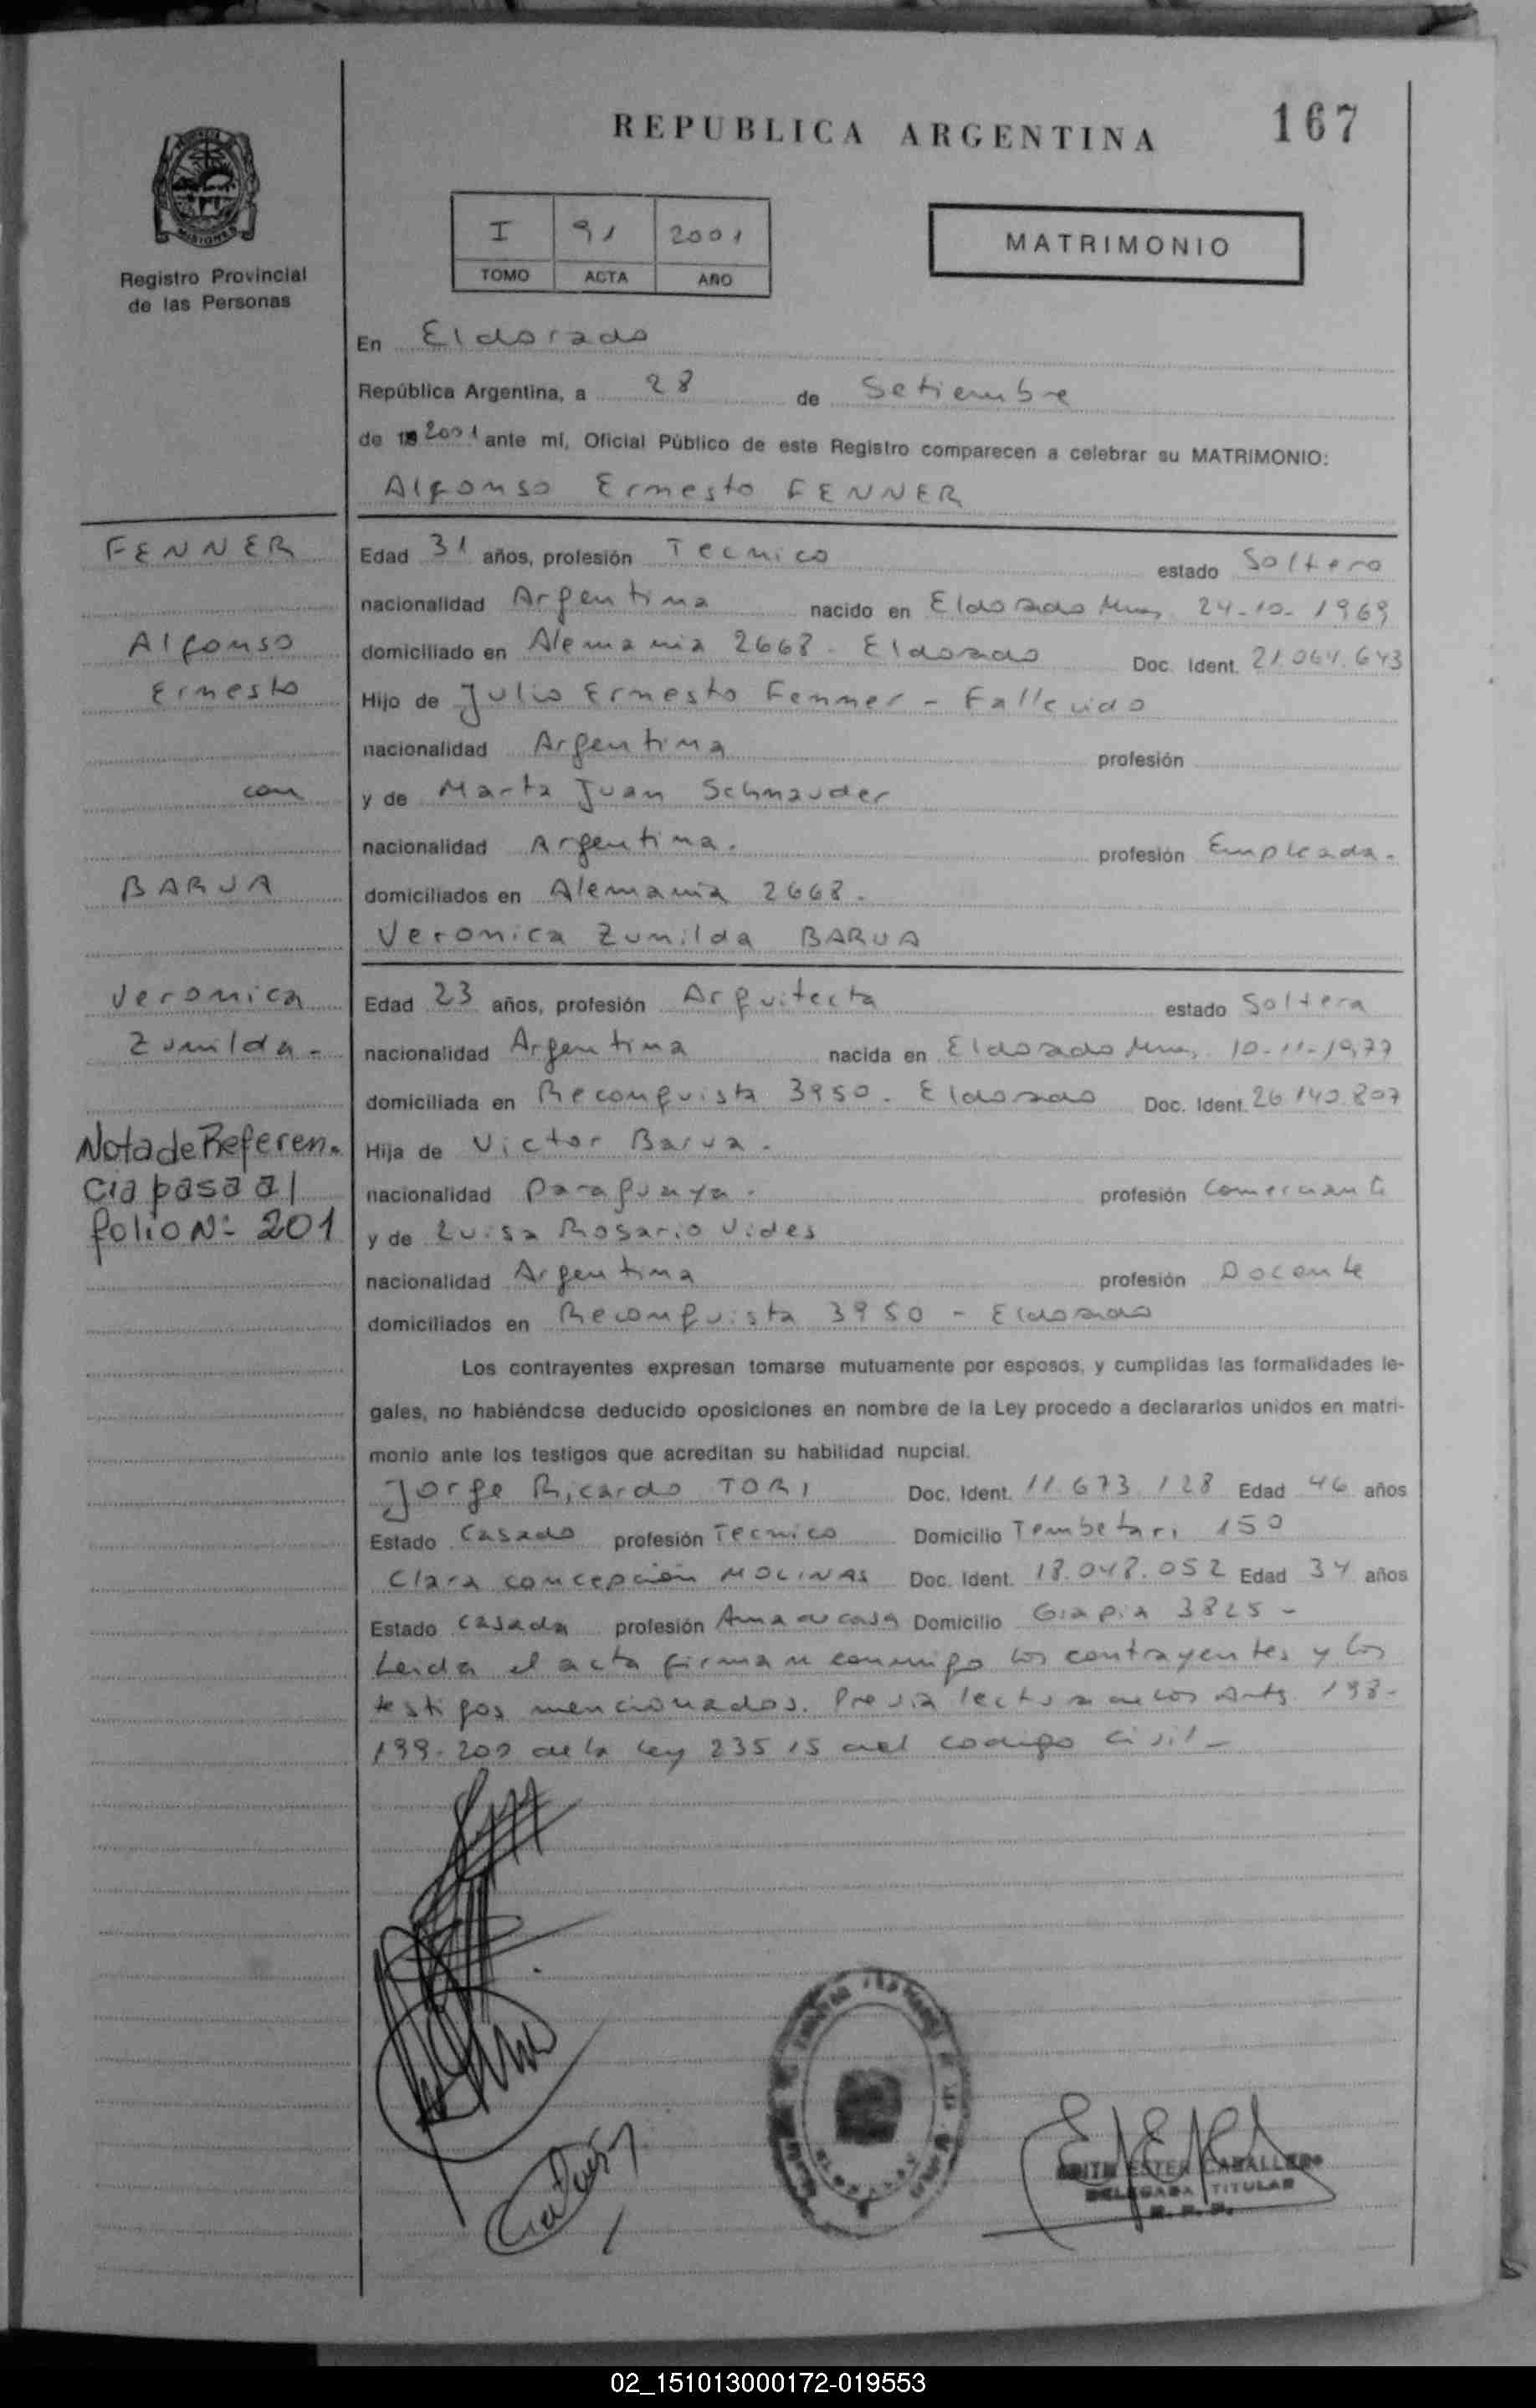 REPUBLICA ARGENTINA
167
MISIONES
Registro Provincial
de las Personas
I 91 2001
TOMO ACTA AÑO
MATRIMONIO
En Eldorado
República Argentina, a 28 de Setiembre
de 2001 ante mí, Oficial Público de este Registro comparecen a celebrar su MATRIMONIO:
Alfonso Ernesto FENNER
FENNER
Alfonso
Ernesto
con
BARUA
Veronica
Zunilda -
Nota de Referen.
cia pasa al
folio Nº 201
Edad 31 años, profesión Tecnico estado Soltero
nacionalidad Argentina nacido en Eldorado Mnes, 24-10-1969
domiciliado en Alemania 2668 - Eldorado Doc. Ident. 21.064.643
Hijo de Julio Ernesto Fenner - Fallecido
nacionalidad Argentina profesión
y de Marta Juan Schnauder
nacionalidad Argentina. profesión Empleada.
domiciliados en Alemania 2668.
Veronica Zunilda BARUA
Edad 23 años, profesión Arquitecta estado Soltera
nacionalidad Argentina nacida en Eldorado Mnes, 10-11-1977
domiciliada en Reconquista 3950 - Eldorado Doc. Ident. 26.140.807
Hija de Victor Barua.
nacionalidad Paraguaya. profesión Comerciante
y de Luisa Rosario Vides
nacionalidad Argentina profesión Docente
domiciliados en Reconquista 3950 - Eldorado
Los contrayentes expresan tomarse mutuamente por esposos, y cumplidas las formalidades le-
gales, no habiéndose deducido oposiciones en nombre de la Ley procedo a declararlos unidos en matri-
monio ante los testigos que acreditan su habilidad nupcial.
Jorge Ricardo TORI Doc. Ident. 11.673.128 Edad 46 años
Estado Casado profesión Tecnico Domicilio Tembetari 150
Clara concepción MOLINAS Doc. Ident. 18.048.052 Edad 34 años
Estado casada profesión Ama de casa Domicilio Giapia 3825 -
Leida el acta firman conmigo los contrayentes y los
testigos mencionados. Previa lectura de los Arts. 198-
199-200 de la ley 23515 del codigo civil -
EDITH ESTER CABALLERO
DELEGADA TITULAR
R. P. P.
02_151013000172-019553